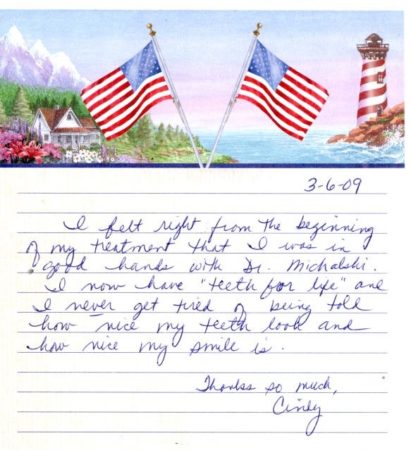 3-6-09
I felt right from the beginning
of my treatment that I was in
good hands with Dr. Michalski.
I now have "teeth for life" and
I never get tired of being told
how nice my teeth look and
how nice my smile is.
Thanks so much,
Cindy